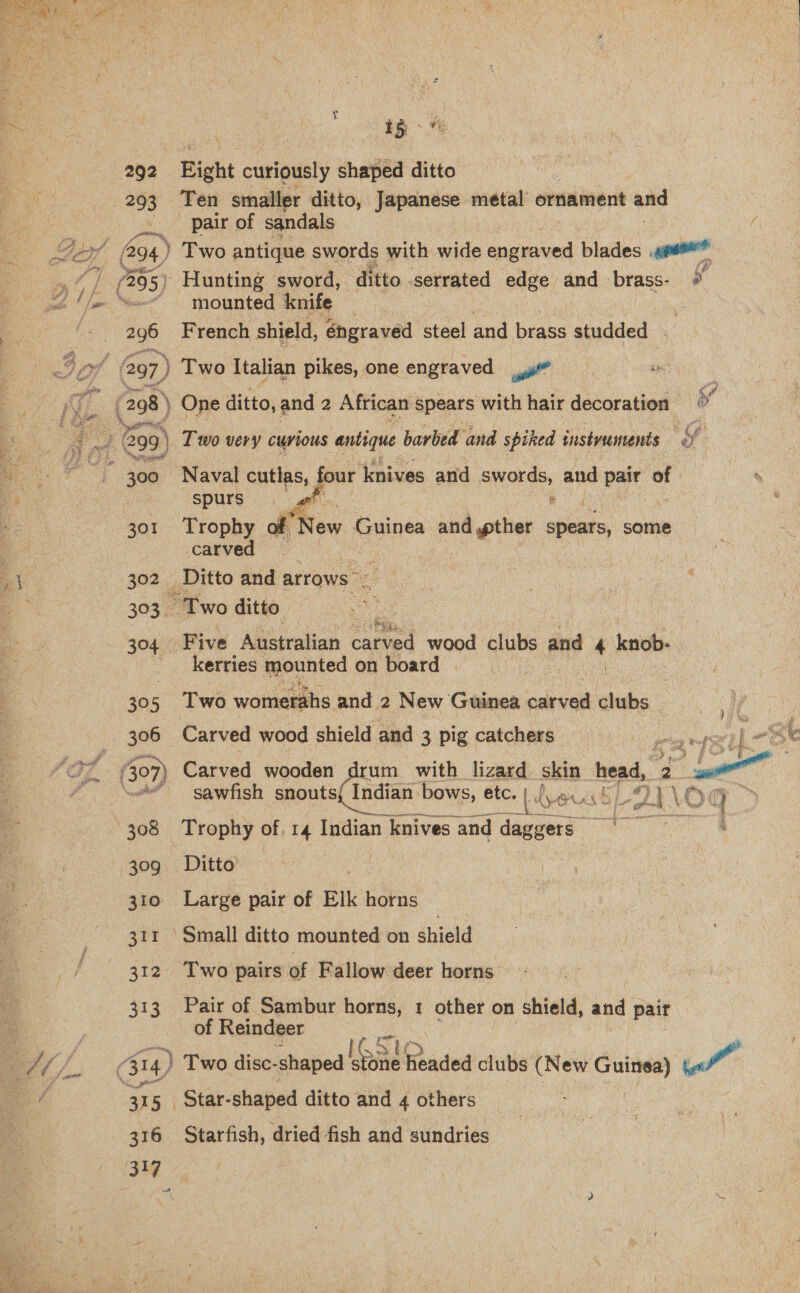 15
292 Eight curiously shaped ditto
293 Ten smaller ditto, Japanese metal ornament and
pair of sandals
294 Two antique swords with wide engraved blades
295 Hunting sword, ditto serrated edge and brass-
mounted knife
296 French shield, engraved steel and brass studded
297 Two Italian pikes, one engraved
298 One ditto, and 2 African spears with hair decoration
299 Two very curious antique barbed and spiked instruments
300 Naval cutlas, four knives and swords, and pair of
spurs
301 Trophy of New Guinea and other spears, some
carved
302 Ditto and arrows
303 Two ditto
304 Five Australian carved wood clubs and 4 knob-
kerries mounted on board
305 Two womerahs and 2 New Guinea carved clubs
306 Carved wood shield and 3 pig catchers
307 Carved wooden drum with lizard skin head, 2
sawfish snouts, Indian bows, etc.
308 Trophy of 14 Indian knives and daggers
309 Ditto
310 Large pair of Elk horns
311 Small ditto mounted on shield
312 Two pairs of Fallow deer horns
313 Pair of Sambur horns, 1 other on shield, and pair
of Reindeer
314 Two disc-shaped stone headed clubs (New Guinea)
315 Star-shaped ditto and 4 others
316 Starfish, dried fish and sundries
317